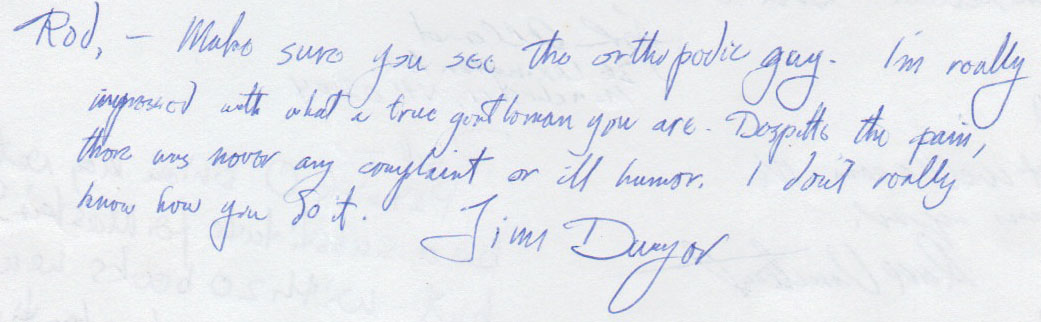 Rod, — Make sure you see the orthopodic guy. I'm really
impressed with what a true gentleman you are. Despitte the pain,
there was never any complaint or ill humor. I don't really
know how you do it. Jim Dwyer